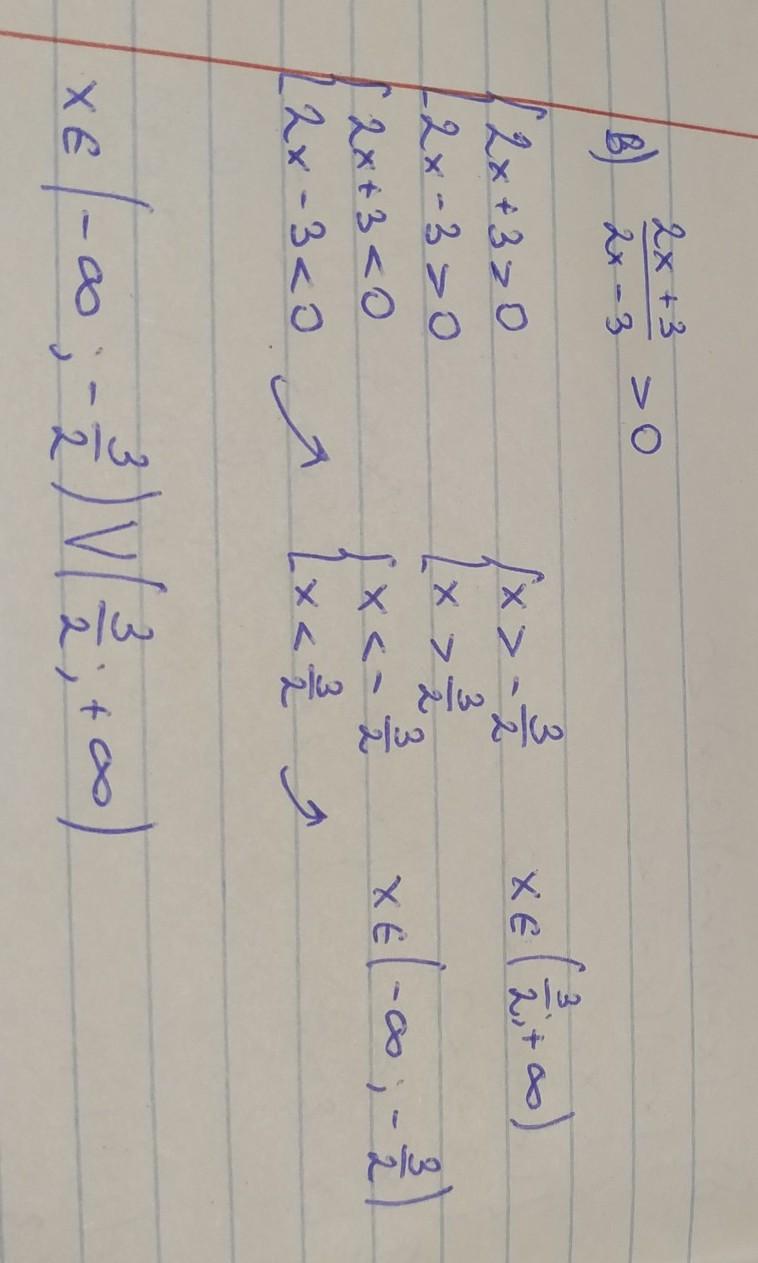 в) \frac{2x+3}{2x-3} > 0
{ 2x+3>0 { x > -\frac{3}{2} x ∈ (\frac{3}{2}; +∞)
{ 2x-3>0 { x > \frac{3}{2}
{ 2x+3<0 { x < -\frac{3}{2} x ∈ (-∞; -\frac{3}{2})
{ 2x-3<0 → { x < \frac{3}{2} →
x ∈ (-∞; -\frac{3}{2}) V (\frac{3}{2}; +∞)